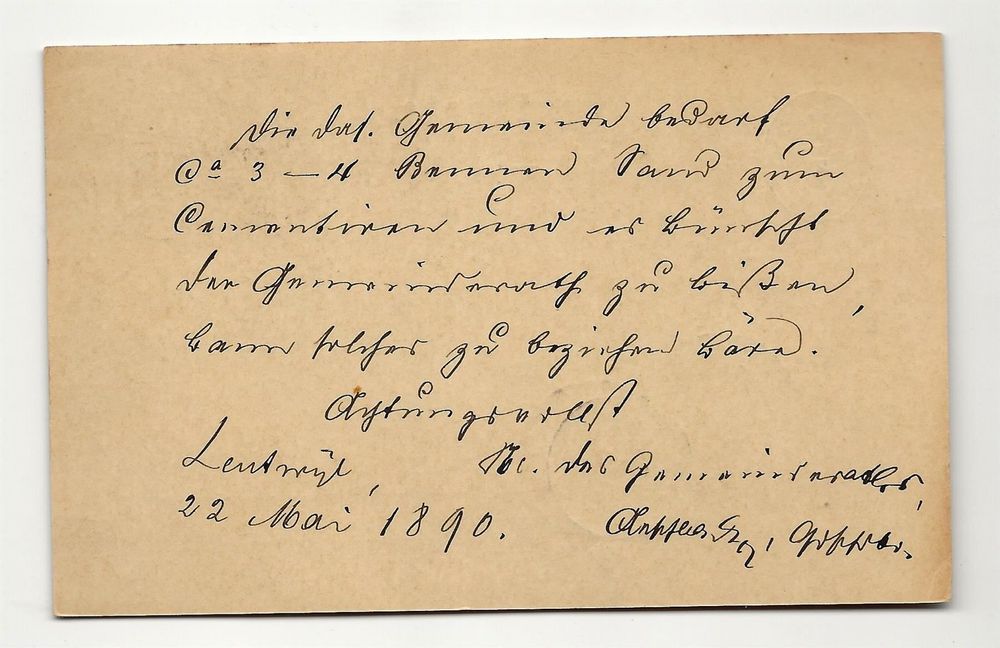 Die das. Gemeinde bedarf
Ca 3 – 4 Bennen Sand zum
Cementiren und es wünscht
der Gemeinderath zu wißen,
wann solches zu beziehen wäre.
Achtungsvollst
Leutwyl, N. des Gemeinderathes,
22 Mai 1890.